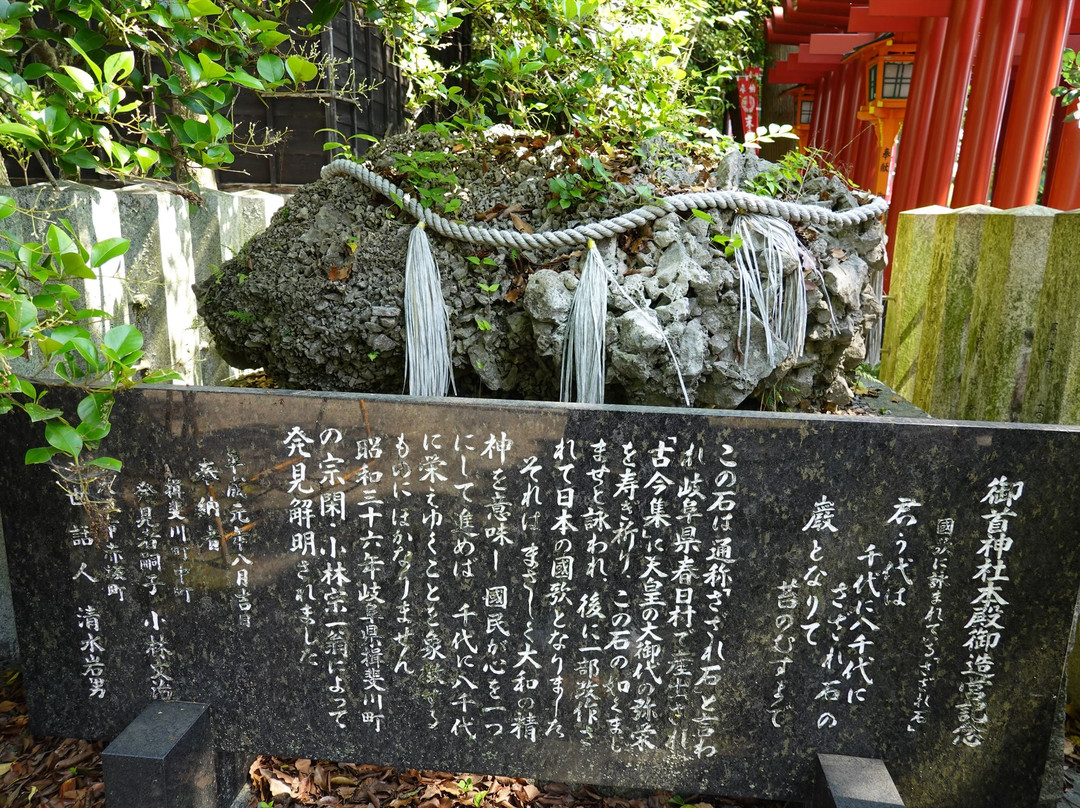 御首神社本殿御造営記念
國がに詠まれてる「さざれ石」
君が代は
千代に八千代に
さざれ石の
巌となりて
苔のむすまで
この石は通称「さざれ石」と言わ
れ岐阜県春日村で産出され
「古今集」に天皇の大御代の弥栄
を寿ぎ祈り、この石の如くまし
ませと詠われ、後に一部改作さ
れて日本の國歌となりました
それはまさしく大和の精
神を意味し國民が心を一つ
にして進めば、千代に八千代
に栄えゆくことを象徴する
ものにほかなりません
昭和三十六年岐阜県揖斐川町
の宗閑・小林宗一翁によって
発見解明されました
平成元年八月吉日
奉納者
揖斐川町
発見者嗣子 小林
世話人 清水岩男